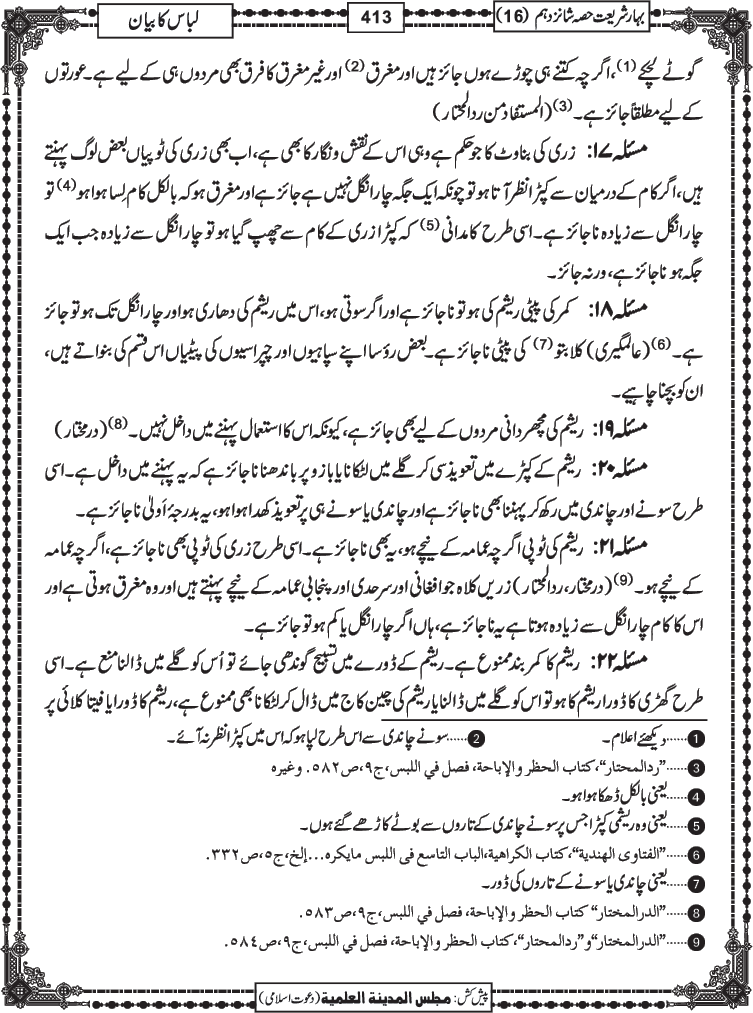 بہار شریعت حصہ شانزدہم (16)
413
لباس کا بیان
گوٹے لچکے (1)، اگرچہ کتنے ہی چوڑے ہوں جائز ہیں اور مغرق (2) اور غیر مغرق کا فرق بھی مردوں ہی کے لیے ہے۔ عورتوں
کے لیے مطلقاً جائز ہے۔ (3) (المستفاد من ردالمحتار)
مسئلہ ۱۷: زری کی بناوٹ کا جو حکم ہے وہی اس کے نقش و نگار کا بھی ہے، اب بھی زری کی ٹوپیاں بعض لوگ پہنتے
ہیں، اگر کام کے درمیان سے کپڑا نظر آتا ہو تو چونکہ ایک جگہ چار انگل نہیں ہے جائز ہے اور مغرق ہو کہ بالکل کام لِسا ہوا ہو (4) تو
چار انگل سے زیادہ ناجائز ہے۔ اسی طرح کامدانی (5) کہ کپڑا زری کے کام سے چھپ گیا ہو تو چار انگل سے زیادہ جب ایک
جگہ ہو ناجائز ہے، ورنہ جائز۔
مسئلہ ۱۸: کمر کی پیٹی ریشم کی ہو تو ناجائز ہے اور اگر سوتی ہو، اس میں ریشم کی دھاری ہو اور چار انگل تک ہو تو جائز
ہے۔ (6) (عالمگیری) کلابتو (7) کی پیٹی ناجائز ہے۔ بعض رؤسا اپنے سپاہیوں اور چپراسیوں کی پیٹیاں اس قسم کی بنواتے ہیں،
ان کو بچنا چاہیے۔
مسئلہ ۱۹: ریشم کی مچھر دانی مردوں کے لیے بھی جائز ہے، کیونکہ اس کا استعمال پہننے میں داخل نہیں۔ (8) (درمختار)
مسئلہ ۲۰: ریشم کے کپڑے میں تعویذ سی کر گلے میں لٹکانا یا بازو پر باندھنا ناجائز ہے کہ یہ پہننے میں داخل ہے۔ اسی
طرح سونے اور چاندی میں رکھ کر پہننا بھی ناجائز ہے اور چاندی یا سونے ہی پر تعویذ کھدا ہوا ہو، یہ بدرجۂ اَولیٰ ناجائز ہے۔
مسئلہ ۲۱: ریشم کی ٹوپی اگرچہ عمامہ کے نیچے ہو، یہ بھی ناجائز ہے۔ اسی طرح زری کی ٹوپی بھی ناجائز ہے، اگرچہ عمامہ
کے نیچے ہو۔ (9) (درمختار، ردالمحتار) زریں کلاہ جو افغانی اور سرحدی اور پنجابی عمامہ کے نیچے پہنتے ہیں اور وہ مغرق ہوتی ہے اور
اس کا کام چار انگل سے زیادہ ہوتا ہے یہ ناجائز ہے، ہاں اگر چار انگل یا کم ہو تو جائز ہے۔
مسئلہ ۲۲: ریشم کا کمر بند ممنوع ہے۔ ریشم کے ڈورے میں تسبیح گوندھی جائے تو اُس کو گلے میں ڈالنا منع ہے۔ اسی
طرح گھڑی کا ڈورا ریشم کا ہو تو اس کو گلے میں ڈالنا یا ریشم کی چین کاج میں ڈال کر لٹکانا بھی ممنوع ہے، ریشم کا ڈورا یا فیتا کلائی پر
1 ......دیکھئے اعلام۔ 2 ......سونے چاندی سے اس طرح لپا ہو کہ اس میں کپڑا نظر نہ آئے۔
3 ......"ردالمحتار"، کتاب الحظر والإباحة، فصل في اللبس، ج۹، ص۵۸۲. وغیرہ
4 ......یعنی بالکل ڈھکا ہوا ہو۔
5 ......یعنی وہ ریشمی کپڑا جس پر سونے چاندی کے تاروں سے بوٹے کاڑھے گئے ہوں۔
6 ......"الفتاوی الهندية"، کتاب الکراهية، الباب التاسع فی اللبس مایکره...إلخ، ج۵، ص۳۳۲.
7 ......یعنی چاندی یا سونے کے تاروں کی ڈور۔
8 ......"الدرالمختار" کتاب الحظر والإباحة، فصل في اللبس، ج۹، ص۵۸۳.
9 ......"الدرالمختار" و"ردالمحتار"، کتاب الحظر والإباحة، فصل في اللبس، ج۹، ص۵۸٤.
پیش کش: مجلس المدینة العلمیة (دعوت اسلامی)